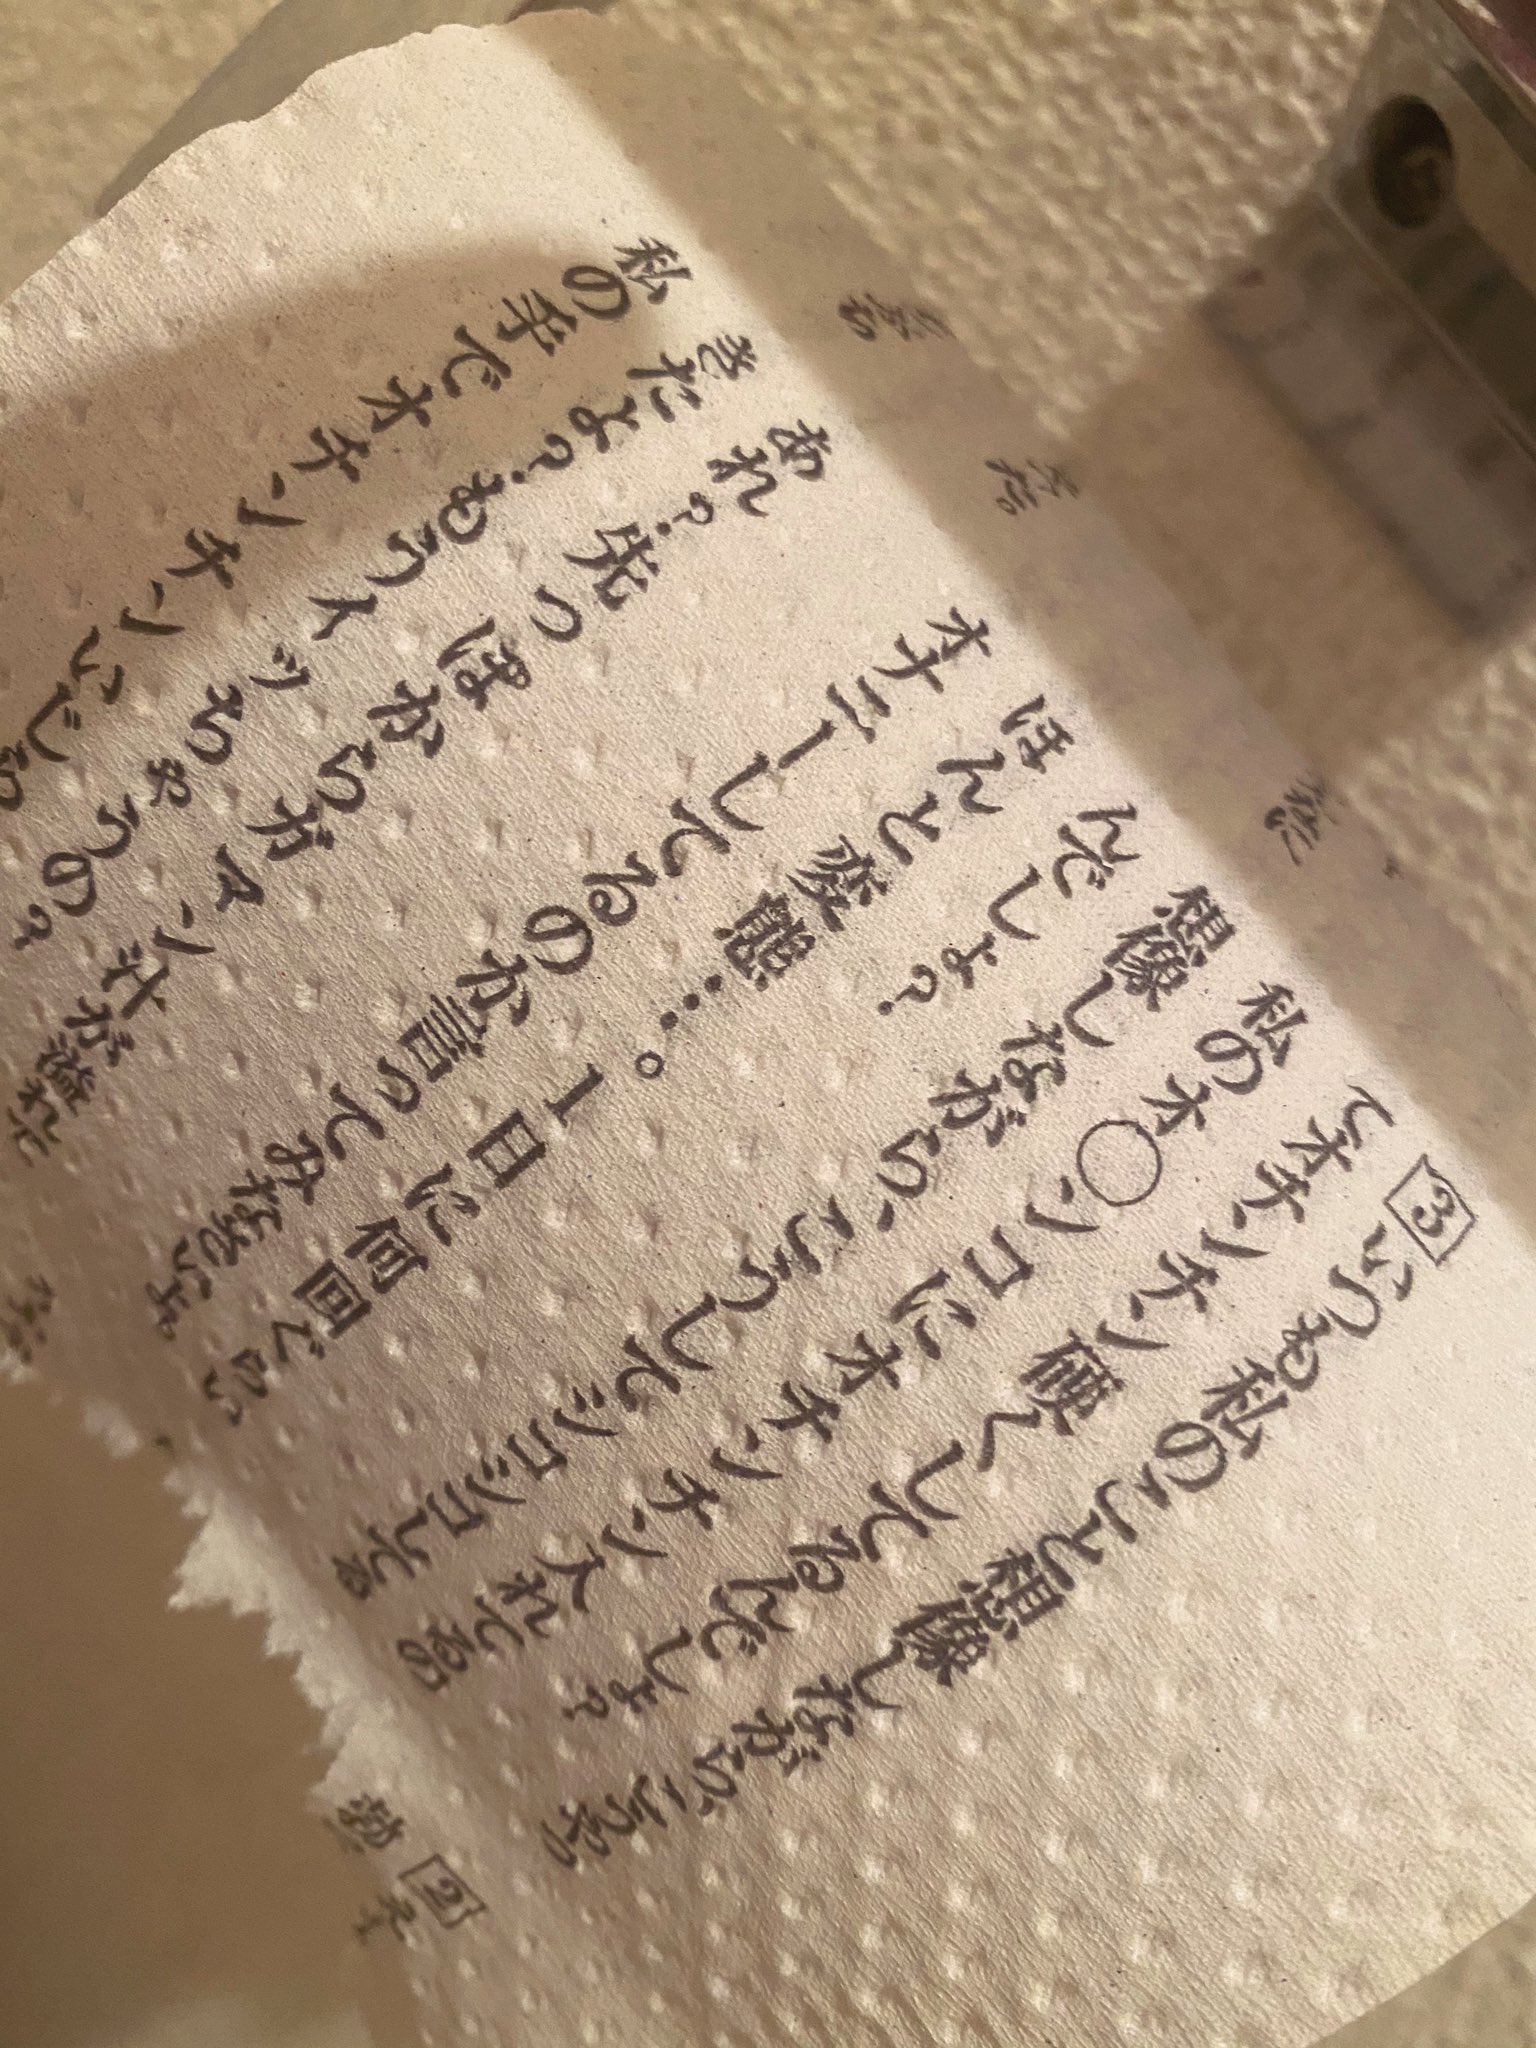 3
いつも私のこと想像しながらこうやっ
てオチンチン硬くしてるんでしょ?
私のオ○ンコにオチンチン入れてるの
想像しながら、こうしてシコシコしてる
んでしょ?
ほんと変態…。1日に何回ぐらい
オナニーしてるのか言ってみなさいよ
あれ?先っぽからガマン汁が溢れて
きたよ?もうイッちゃうの?
私の手でオチンチンいじ
2